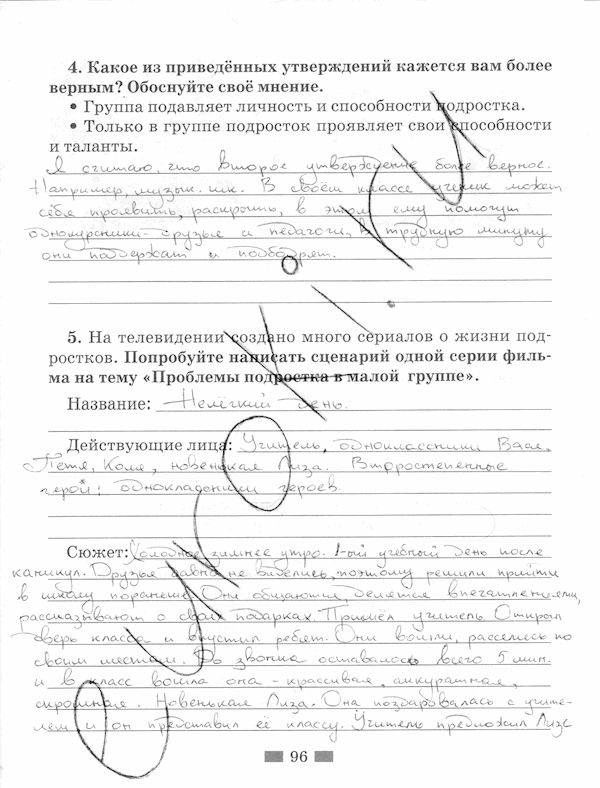 4. Какое из приведённых утверждений кажется вам более
верным? Обоснуйте своё мнение.
• Группа подавляет личность и способности подростка.
• Только в группе подросток проявляет свои способности
и таланты.
Я считаю, что второе утверждение более верное.
Например, музык. шк. В своём классе ученик может
себя проявить, раскрыть, в этом ему помогут
однокурсники-друзья и педагоги, в трудную минуту
они поддержат и подбодрят.
5. На телевидении создано много сериалов о жизни под-
ростков. Попробуйте написать сценарий одной серии филь-
ма на тему «Проблемы подростка в малой группе».
Название: Нелёгкий день.
Действующие лица: Учитель, одноклассники Вася,
Петя, Коля, новенькая Лиза. Второстепенные
герои: однокласники героев.
Сюжет: Холодное зимнее утро. 1-ый учебный день после
каникул. Друзья давно не виделись, поэтому решили прийти
в школу пораньше. Они общаются, делятся впечатлениями,
рассказывают о своих подарках. Пришёл учитель. Открыл
дверь класса и впустил ребят. Они вошли, расселись по
своим местам. До звонка оставалось всего 5 мин.
и в класс вошла она - красивая, аккуратная,
скромная. Новенькая Лиза. Она поздоровалась с учите-
лем и он представил её классу. Учитель предложил Лизе
96